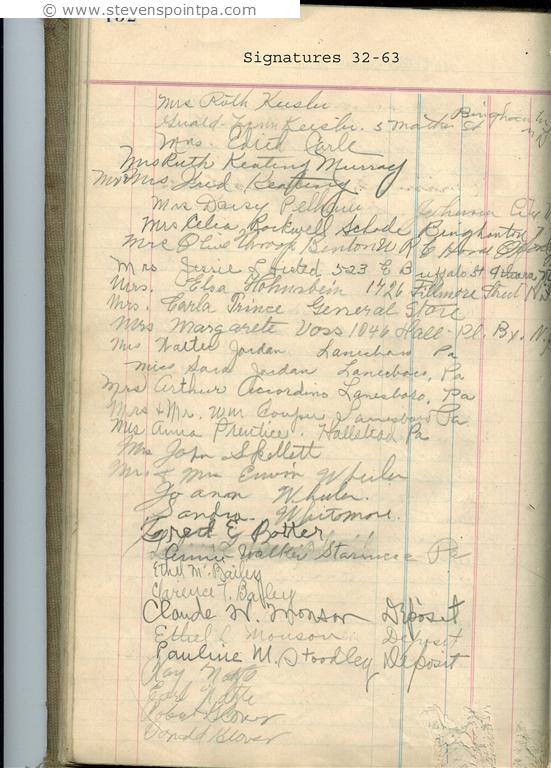 © www.stevenspointpa.com
Signatures 32-63
Mrs Ruth Keisler
Gerald Keisler. 5 St Binghamton
Mrs. Edith Carle
Mrs Ruth Keating Murray
Mr & Mrs Fred Keating
Mrs Daisy Pelham Johnson City
Mrs Celia Rockwell Schode Binghamton
Mrs Olive Throop Benton
Mrs Jessie L Husted 523 E Buffalo St Ithaca
Mrs. Elsa Hohnsbein 1726 Fillmore Street
Mrs. Carla Prince General Store
Mrs Margarete Voss 1046 Hall Pl. Bx. N.Y
Mrs Walter Jordan Lanesboro Pa
Miss Sara Jordan Lanesboro, Pa
Mrs Arthur Accordino Lanesboro, Pa
Mrs & Mr. Wm Cooper Lanesboro Pa
Mrs Anna Prentice. Hallstead Pa
Mrs John Skellett
Mr. & Mrs Erwin Wheeler
Joanon Wheeler.
Sandra Whitmore.
E Potter
Walker Starrucca Pa
Ethel M. Bailey
Clarence T. Bailey
Claude W. Monson Deposit
Ethel L Monson Deposit
Pauline M. Stoodley Deposit
Ray
Earl
Robert Glover
Donald Glover